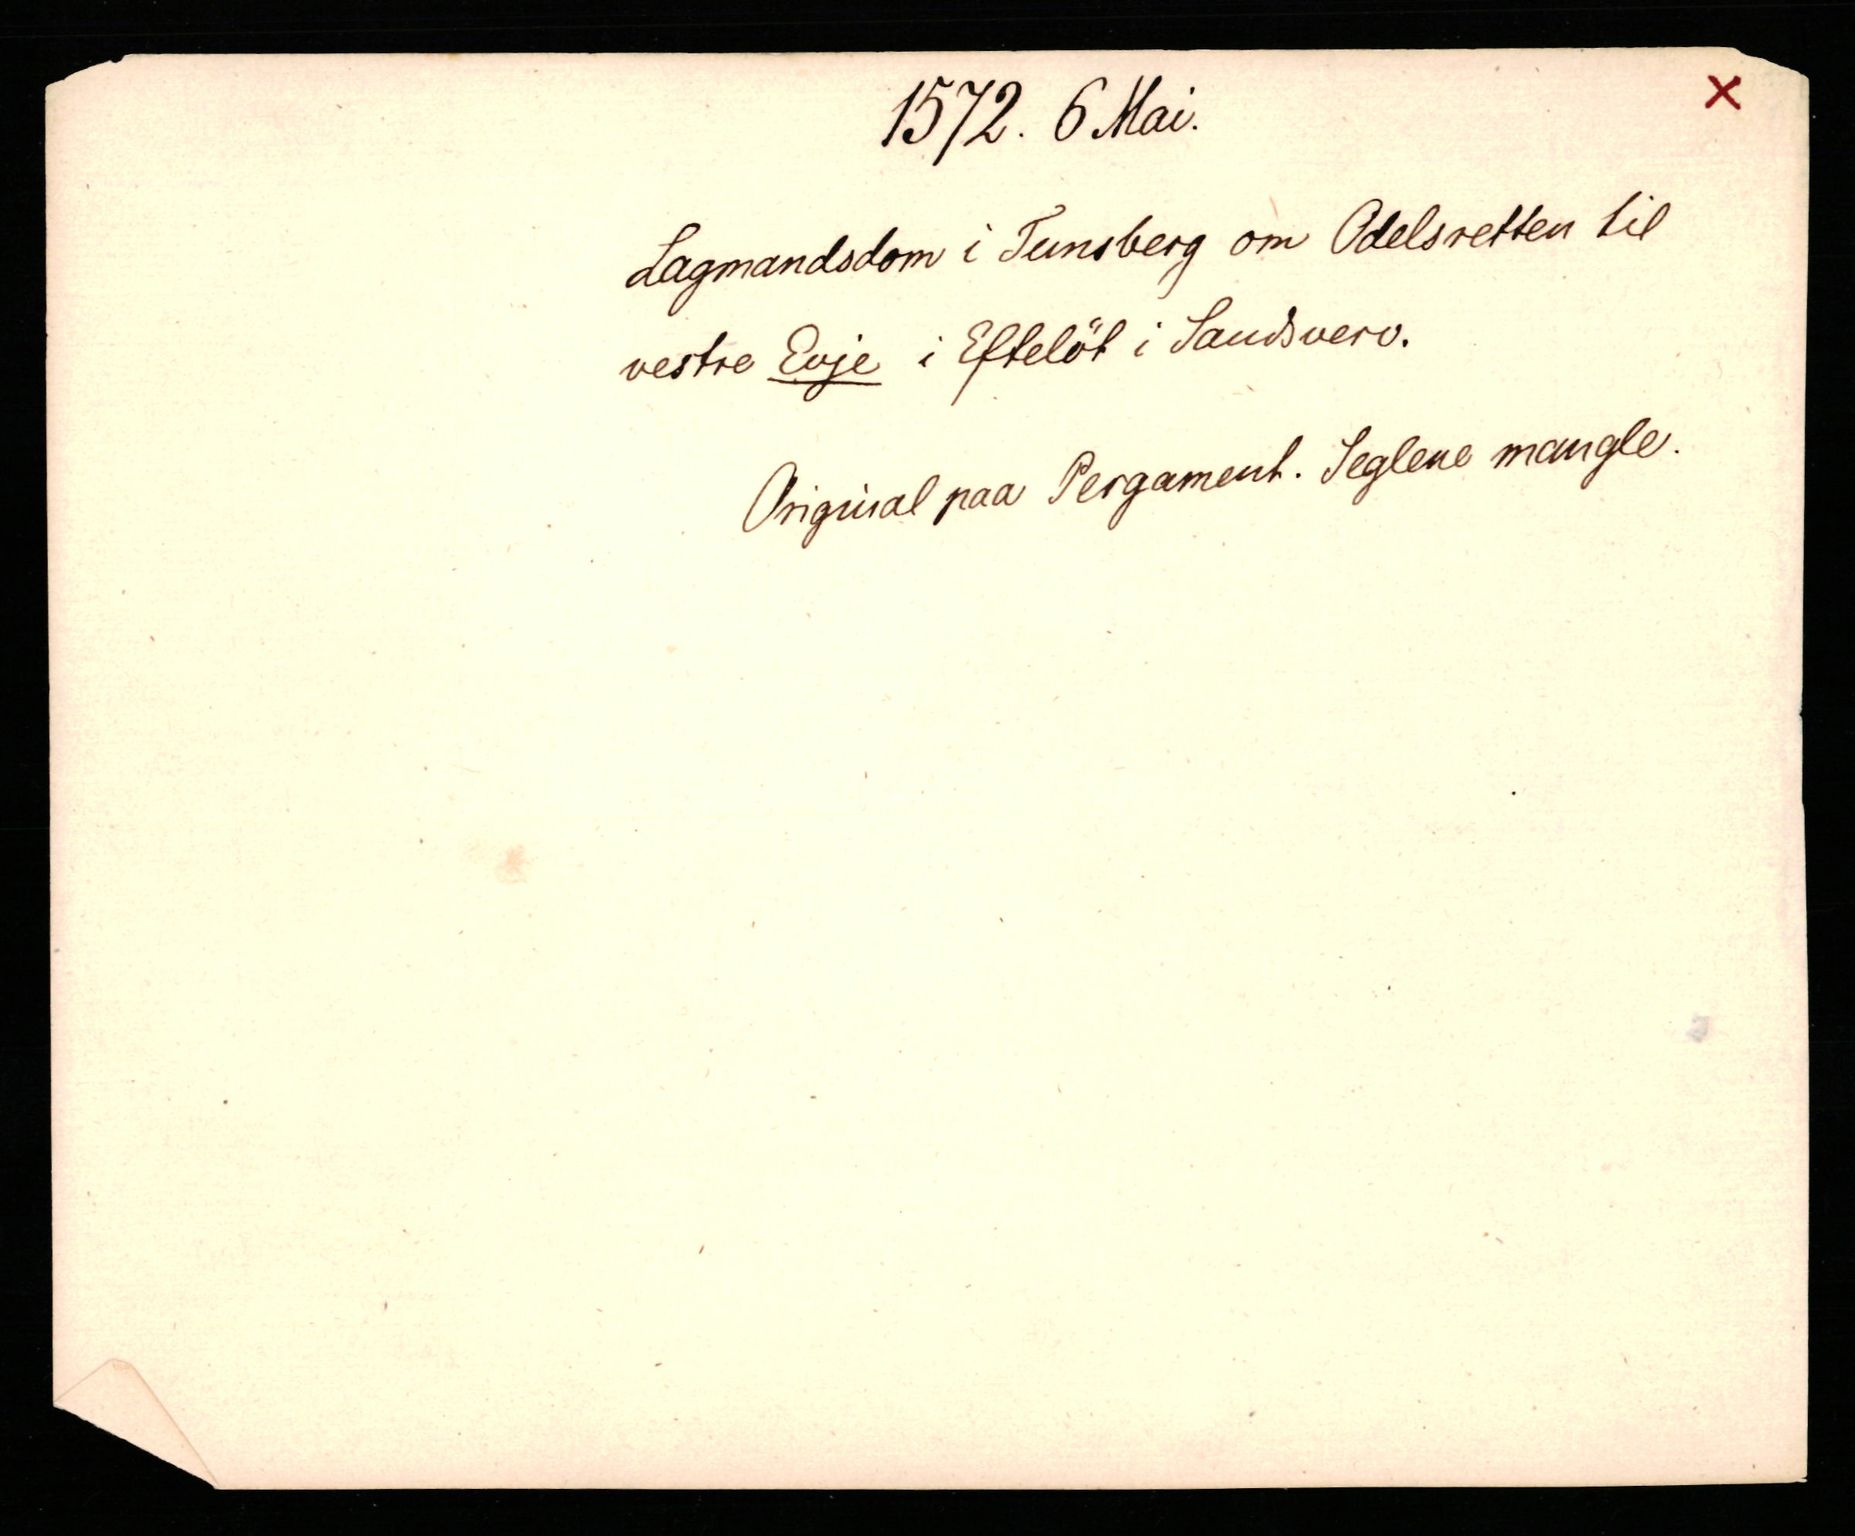 1572. 6 Mai.
Lagmandsdom i Tunsberg om Odelsretten til
vestre Evje i Eftelöt i Sandsverv.
Original paa Pergament. Seglene mangle.